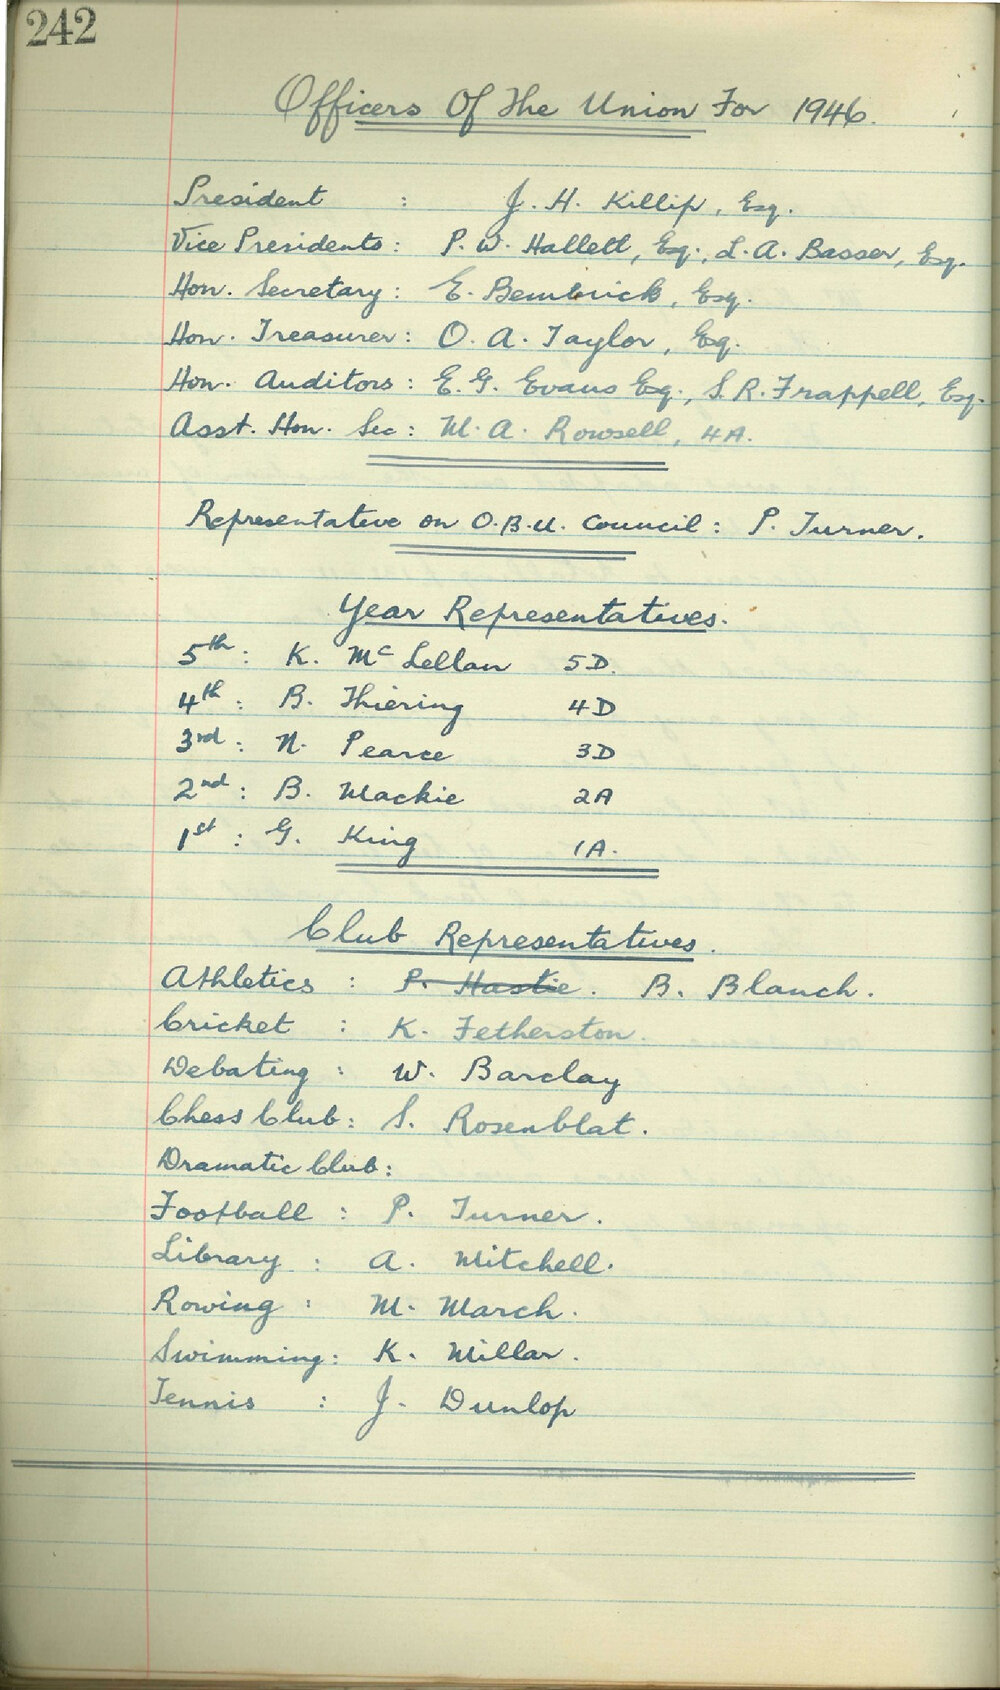 242
Officers Of The Union For 1946.
President : J. H. Killip, Esq.
Vice Presidents: P. W. Hallett, Esq., L. A. Basser, Esq.
Hon. Secretary: E. Bembrick, Esq.
Hon. Treasurer: O. A. Taylor, Esq.
Hon. Auditors: E. G. Evans Esq., S. R. Frappell, Esq.
Asst. Hon. Sec: M. A. Rowsell, 4A.
Representative on O.B.U. Council: P. Turner.
Year Representatives.
5th: K. Mc Lellan 5D.
4th: B. Thiering 4D
3rd: N. Pearce 3D
2nd: B. Mackie 2A
1st: G. King 1A.
Club Representatives.
Athletics : P. Hastie. B. Blanch.
Cricket : K. Fetherston.
Debating : W. Barclay
Chess Club: S. Rosenblat.
Dramatic Club:
Football : P. Turner.
Library : A. Mitchell.
Rowing : M. March.
Swimming: K. Millar.
Tennis : J. Dunlop